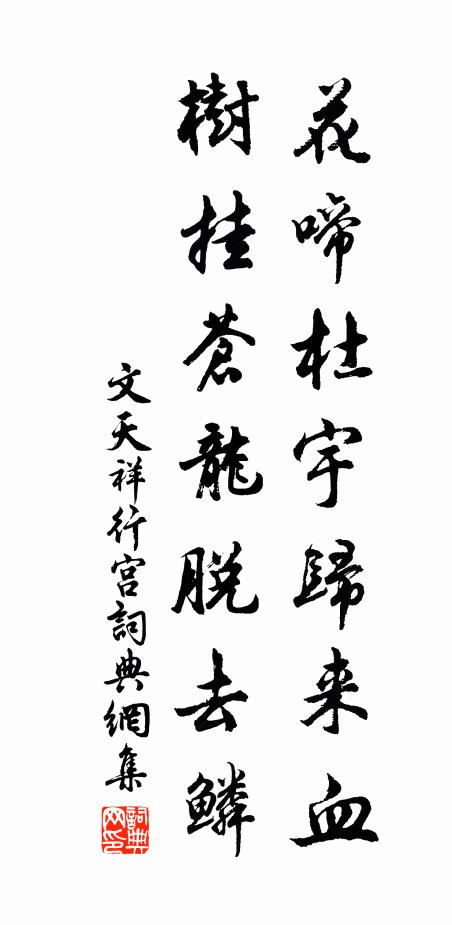 花啼杜宇歸来血
樹挂蒼龍脱去鱗
文天祥行宫詞典網集
詞典網印